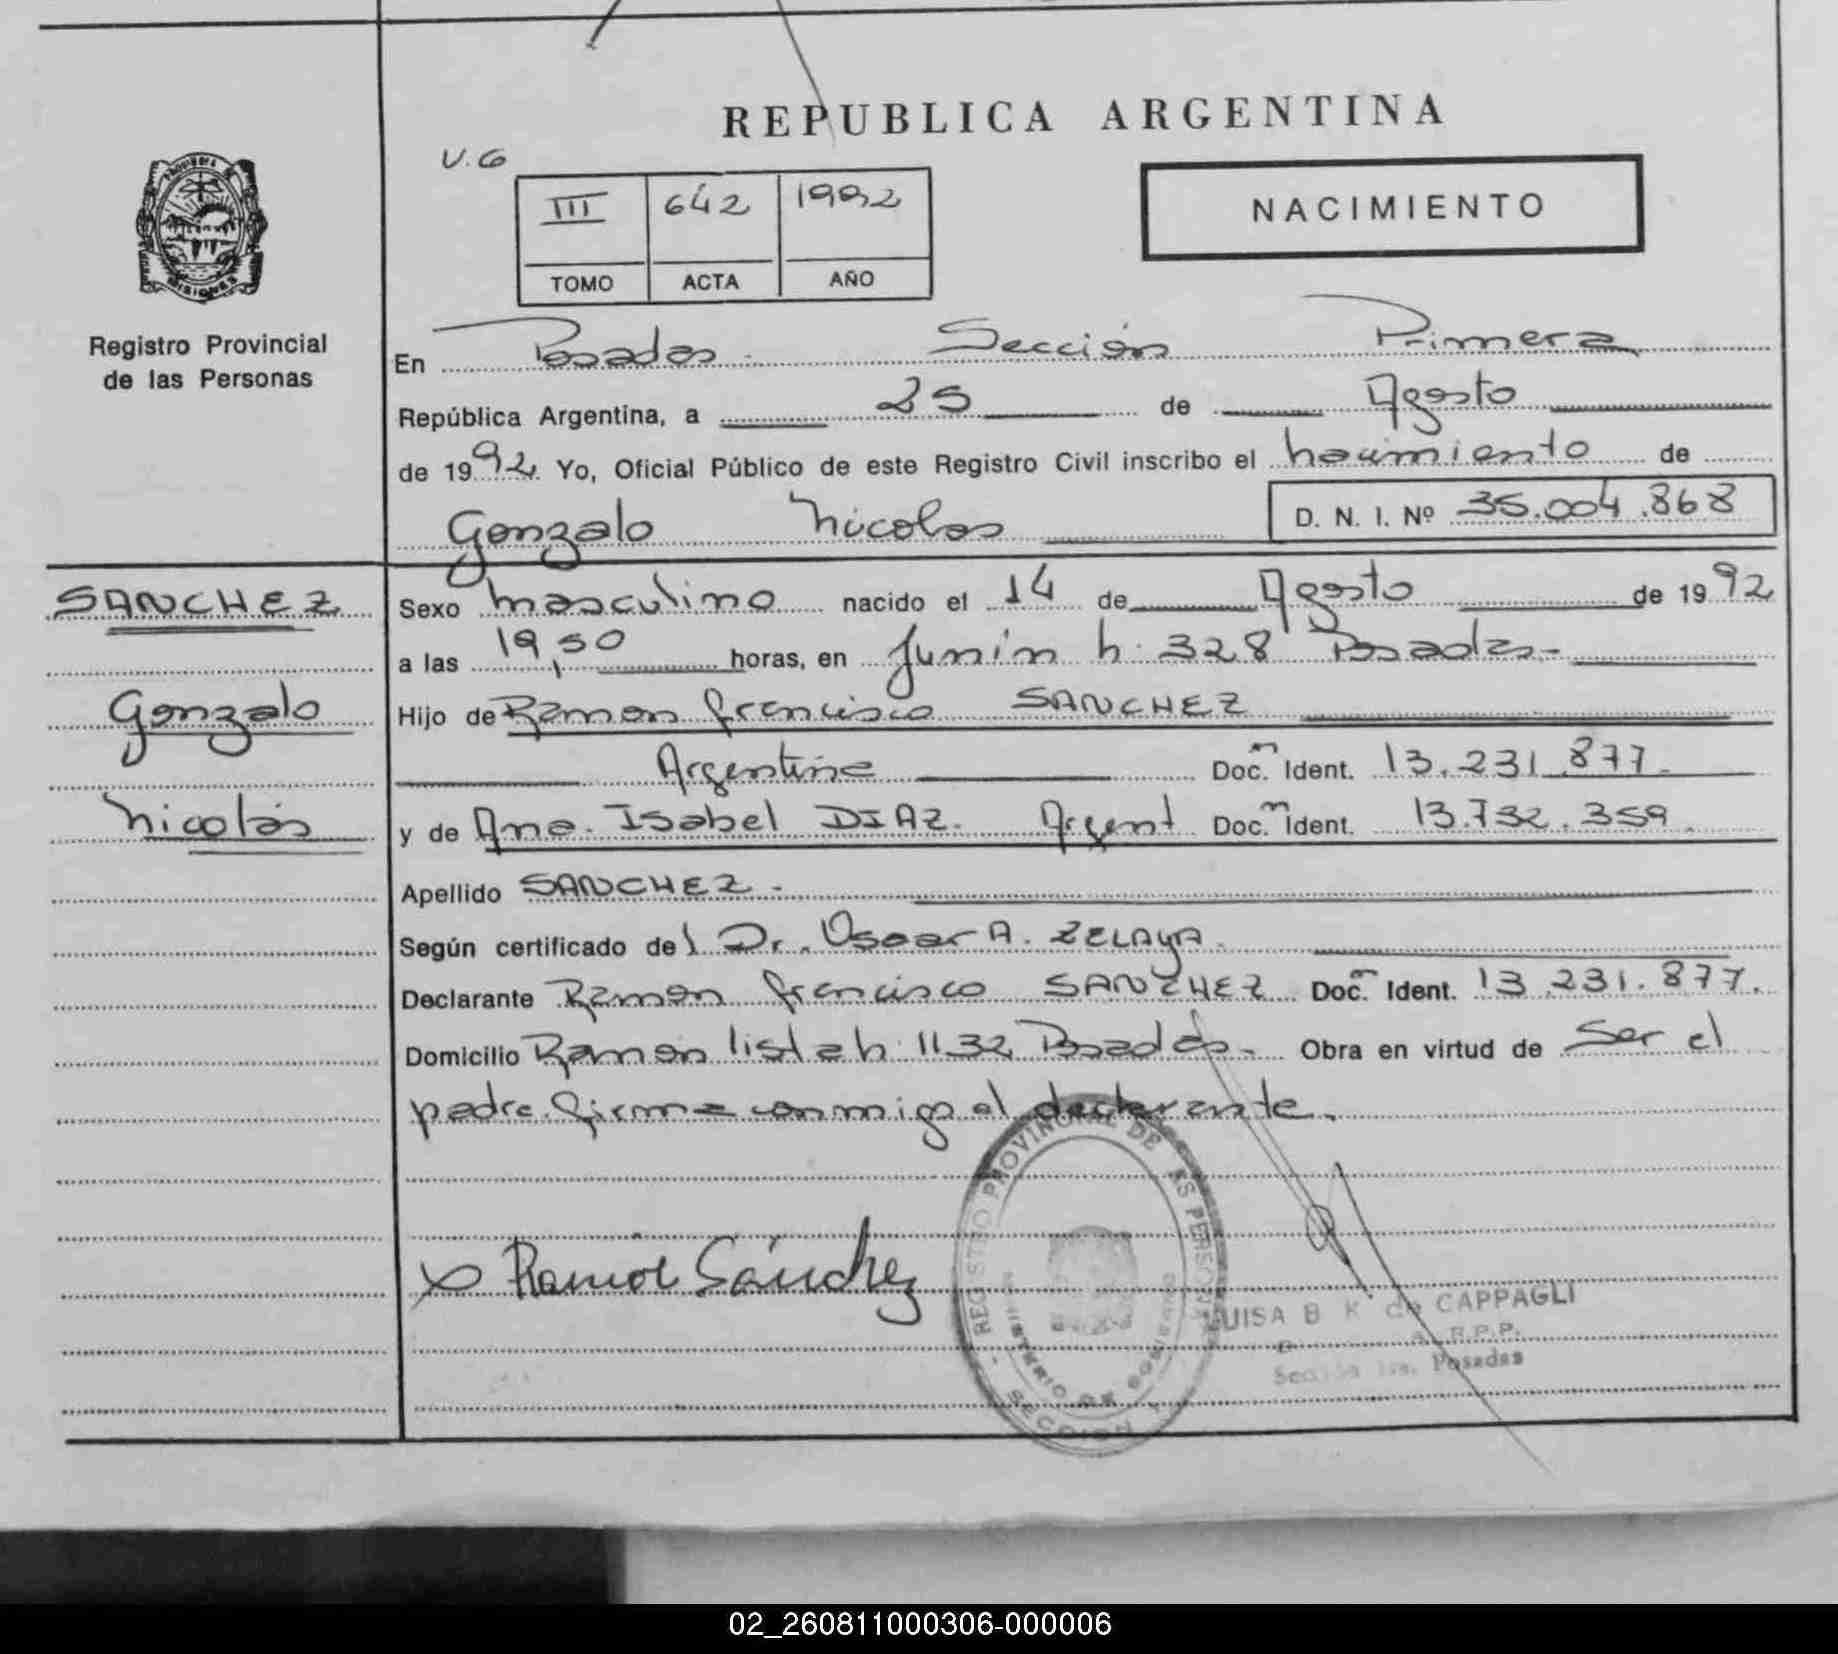 REPUBLICA ARGENTINA
V.G
III 642 1992
TOMO ACTA AÑO
NACIMIENTO
PROVINCIA
MISIONES
Registro Provincial
de las Personas
En Posadas Sección Primera
República Argentina, a 25 de Agosto
de 1992 Yo, Oficial Público de este Registro Civil inscribo el nacimiento de
Gonzalo Nicolas D. N. I. Nº 35.004.868
SANCHEZ
Gonzalo
Nicolás
Sexo masculino nacido el 14 de Agosto de 1992
a las 19,50 horas, en Junín n. 328 Posadas.-
Hijo de Ramon francisco SANCHEZ
Argentino Doc. Ident. 13.231.877.-
y de Ana. Isabel DIAZ. Argent Doc. Ident. 13.732.359.
Apellido SANCHEZ.-
Según certificado del Dr. Oscar A. ZELAYA.
Declarante Ramon francisco SANCHEZ Doc. Ident. 13.231.877.
Domicilio Ramon lista n. 1132 Posadas.- Obra en virtud de Ser el
padre. firma conmigo el declarante.
x Ramón Sánchez
REGISTRO PROVINCIAL DE LAS PERSONAS
MINISTERIO DE GOBIERNO
SECCION
LUISA B K de CAPPAGLI
R.P.P.
Sección 1ra. Posadas
02_260811000306-000006